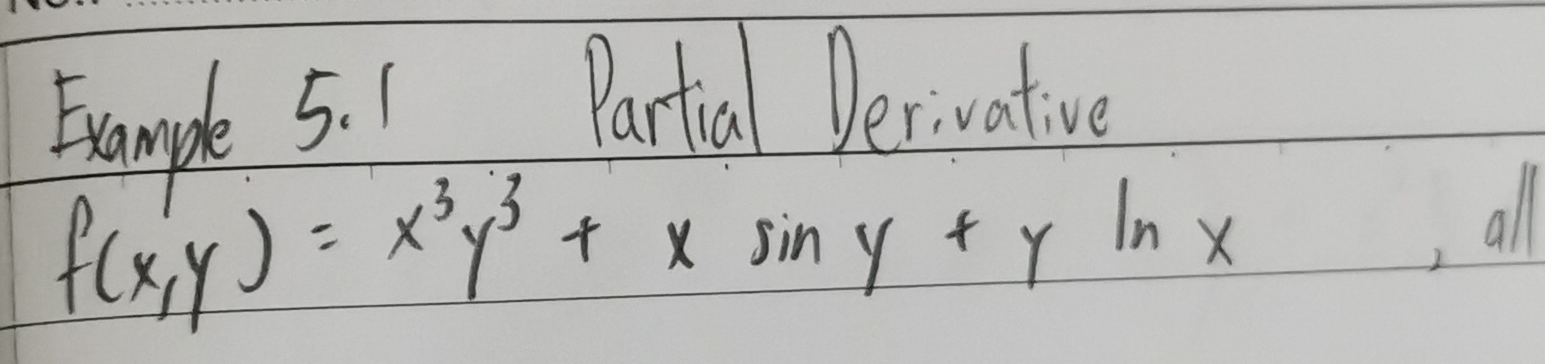 Example 5.1 Partial Derivative
f(x,y) = x³y³ + x sin y + y ln x , all